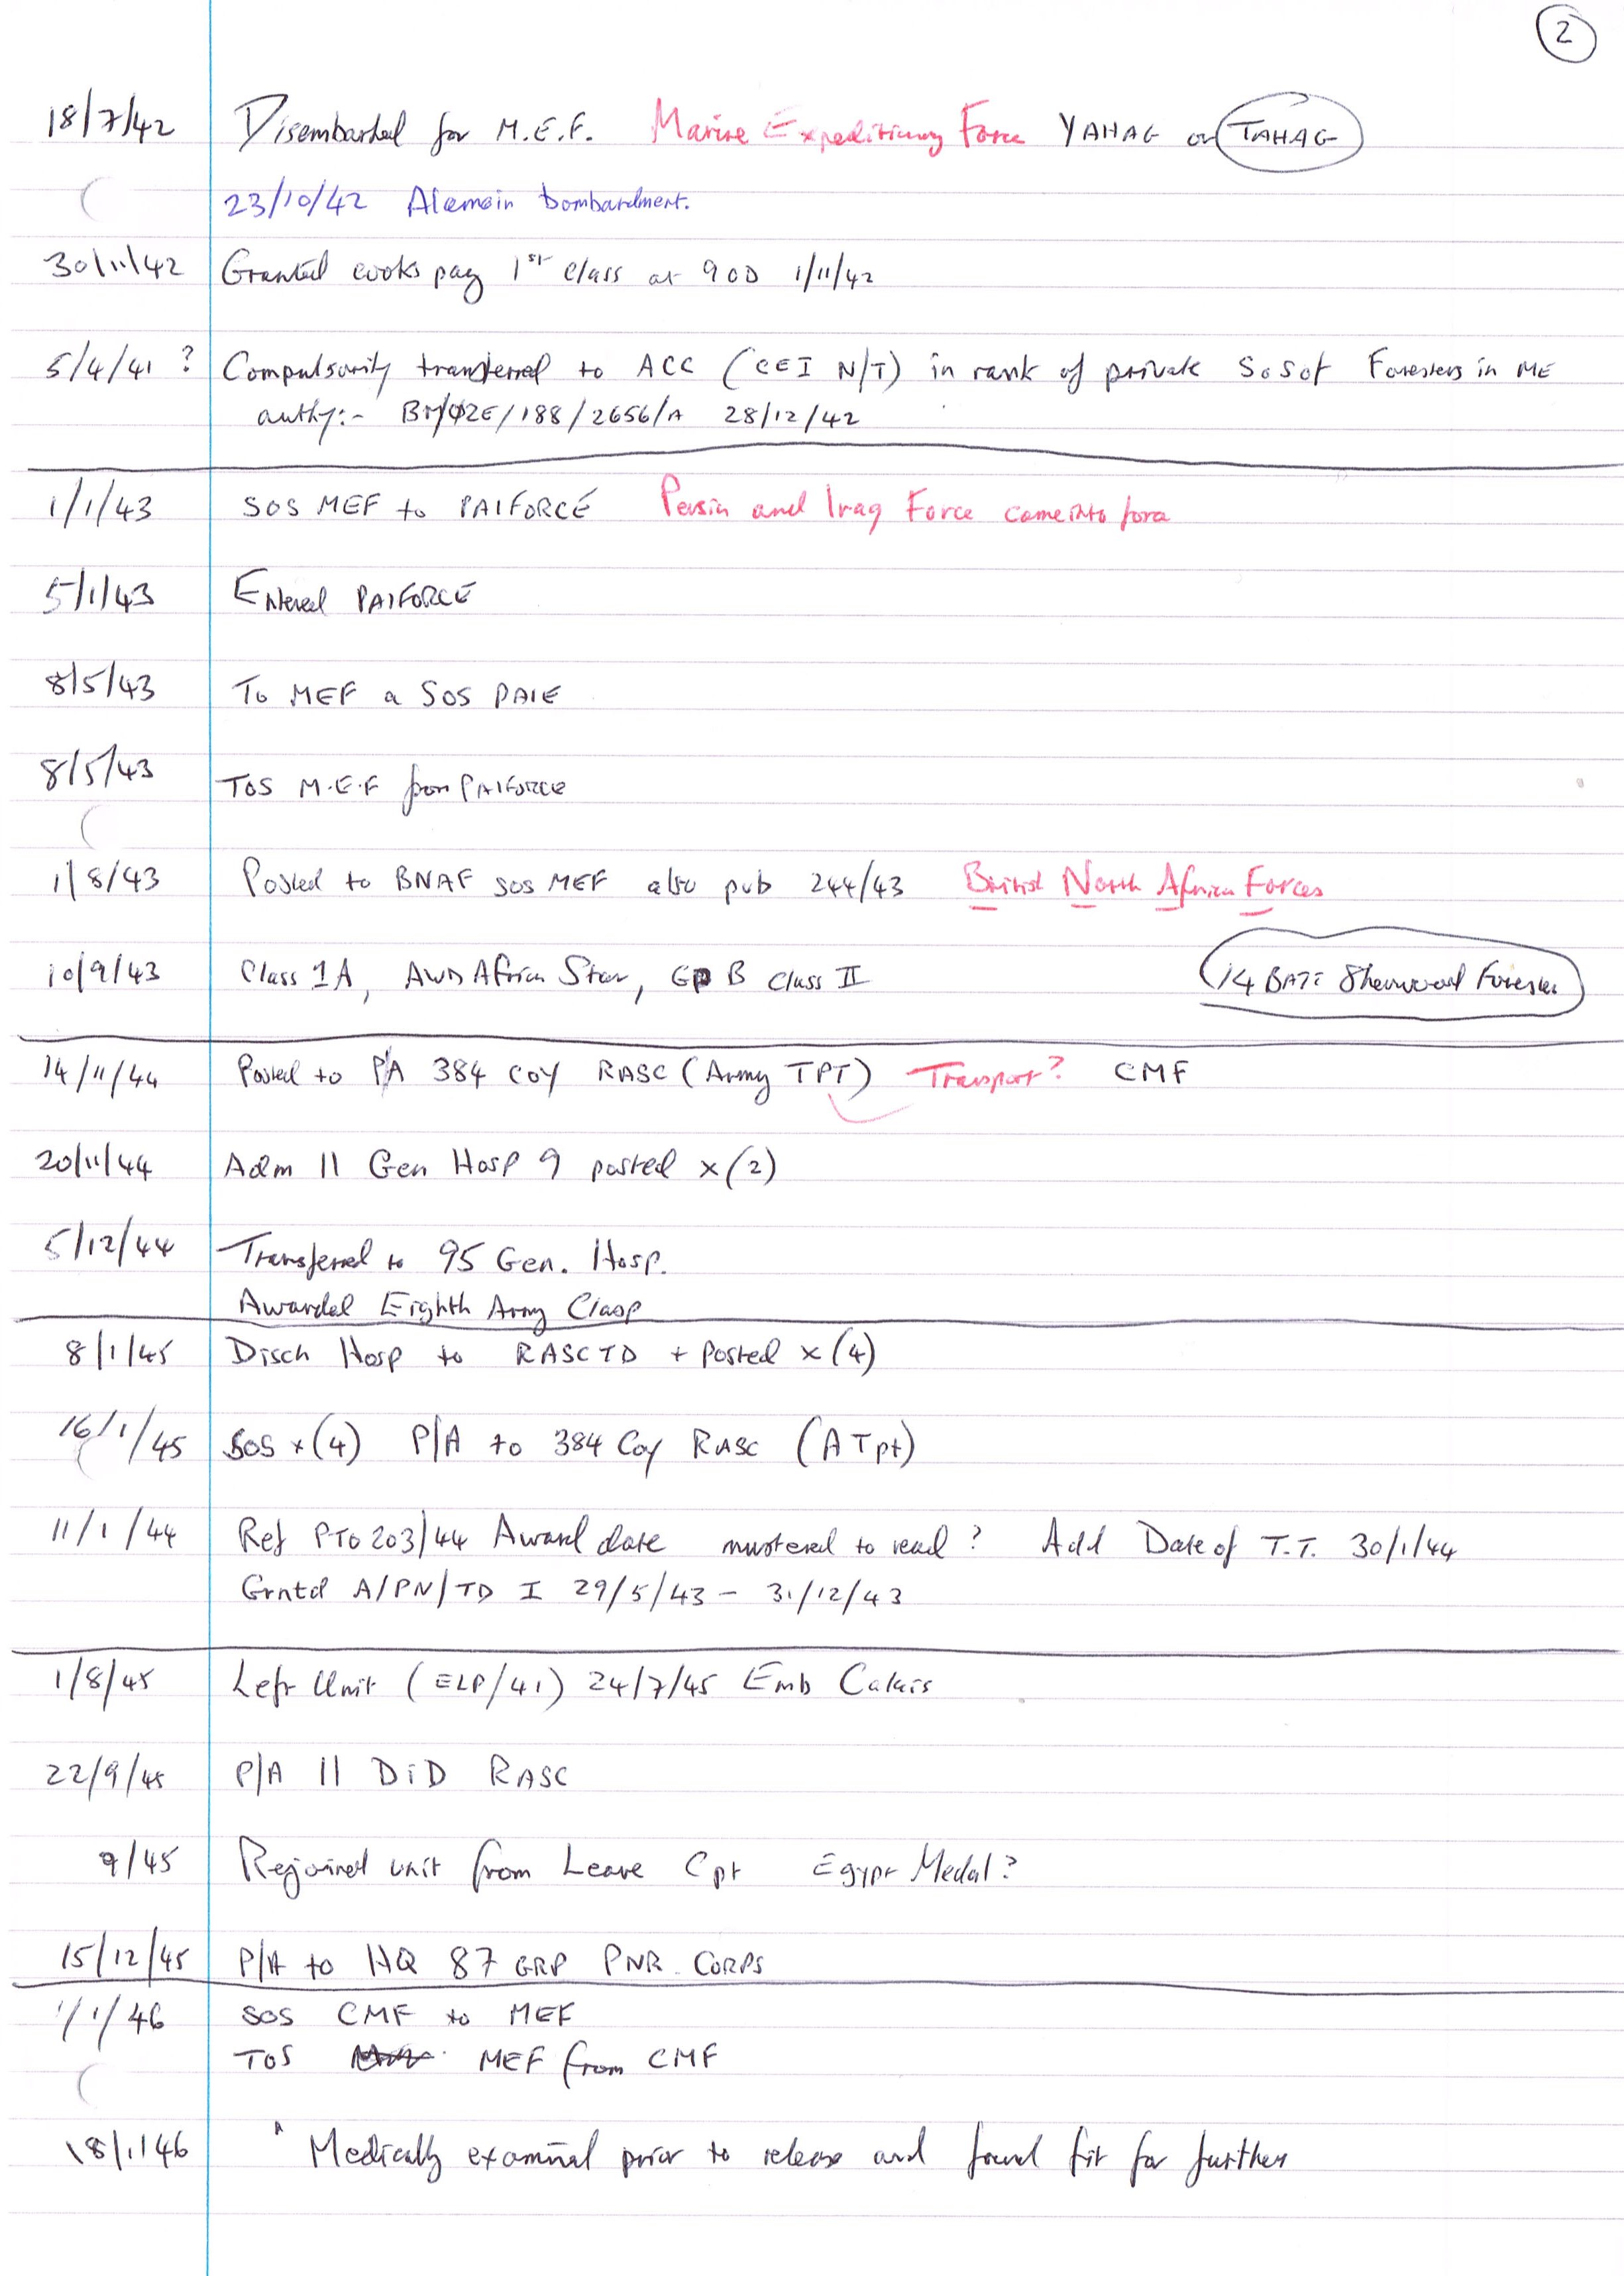 2
18/7/42 Disembarked for M.E.F. Marine Expeditionary Force YAHAG or TAHAG
23/10/42 Alamein bombardment.
30/11/42 Granted cooks pay 1st Class at 90D 1/11/42
5/4/41 ? Compulsarily transferred to ACC (CEI N/T) in rank of private SoSof Foresters in ME
authy:- BM/02E/188/2656/A 28/12/42
1/1/43 SOS MEF to PAIFORCE Persia and Iraq Force came into force
5/1/43 Entered PAIFORCE
8/5/43 To MEF a SOS PAIE
8/5/43 TOS M.E.F from PAIFORCE
1/8/43 Posted to BNAF SOS MEF also pub 244/43 British North African Forces
10/9/43 Class 1A, AWD Africa Star, GP B Class II 14 BATT Sherwood Forester
14/11/44 Posted to P/A 384 COY RASC (Army TPT) Transport? CMF
20/11/44 Adm 11 Gen Hosp 9 posted x(2)
5/12/44 Transferred to 95 Gen. Hosp.
Awarded Eighth Army Clasp
8/1/45 Disch Hosp to RASCTD + Posted x(4)
16/1/45 SOS x(4) P/A to 384 Coy RASC (A Tpt)
11/1/44 Ref PTO 203/44 Award date mustered to read? Add Date of T.T. 30/1/44
Grntd A/PN/TD I 29/5/43 - 31/12/43
1/8/45 Left Unit (ELP/41) 24/7/45 Emb Calais
22/9/45 P/A 11 DiD RASC
9/45 Rejoined unit from Leave Cpt Egypt Medal?
15/12/45 P/A to HQ 87 GRP PNR CORPS
1/1/46 SOS CMF to MEF
TOS MEF from CMF
18/1/46 " Medically examined prior to release and found fit for further